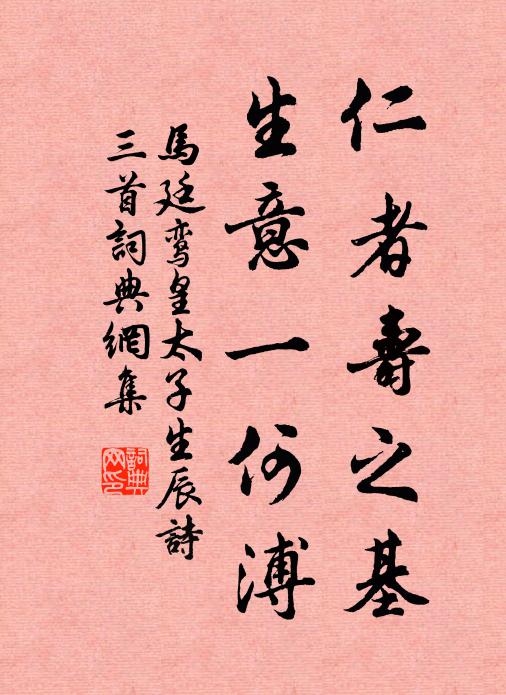 仁者壽之基
生意一何溥
馬廷鸾皇太子生辰詩
三首詞典網集
詞典網印